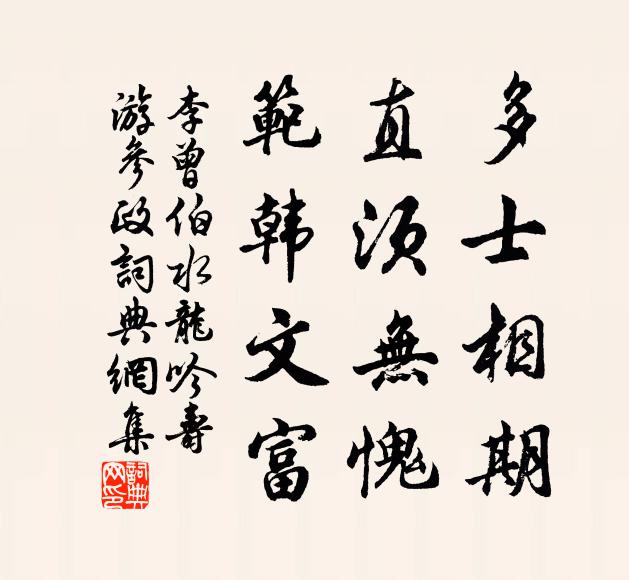 多士相期
直須無愧
範韩文富
李曾伯水龍吟壽
游參政詞典網集
詞典網印